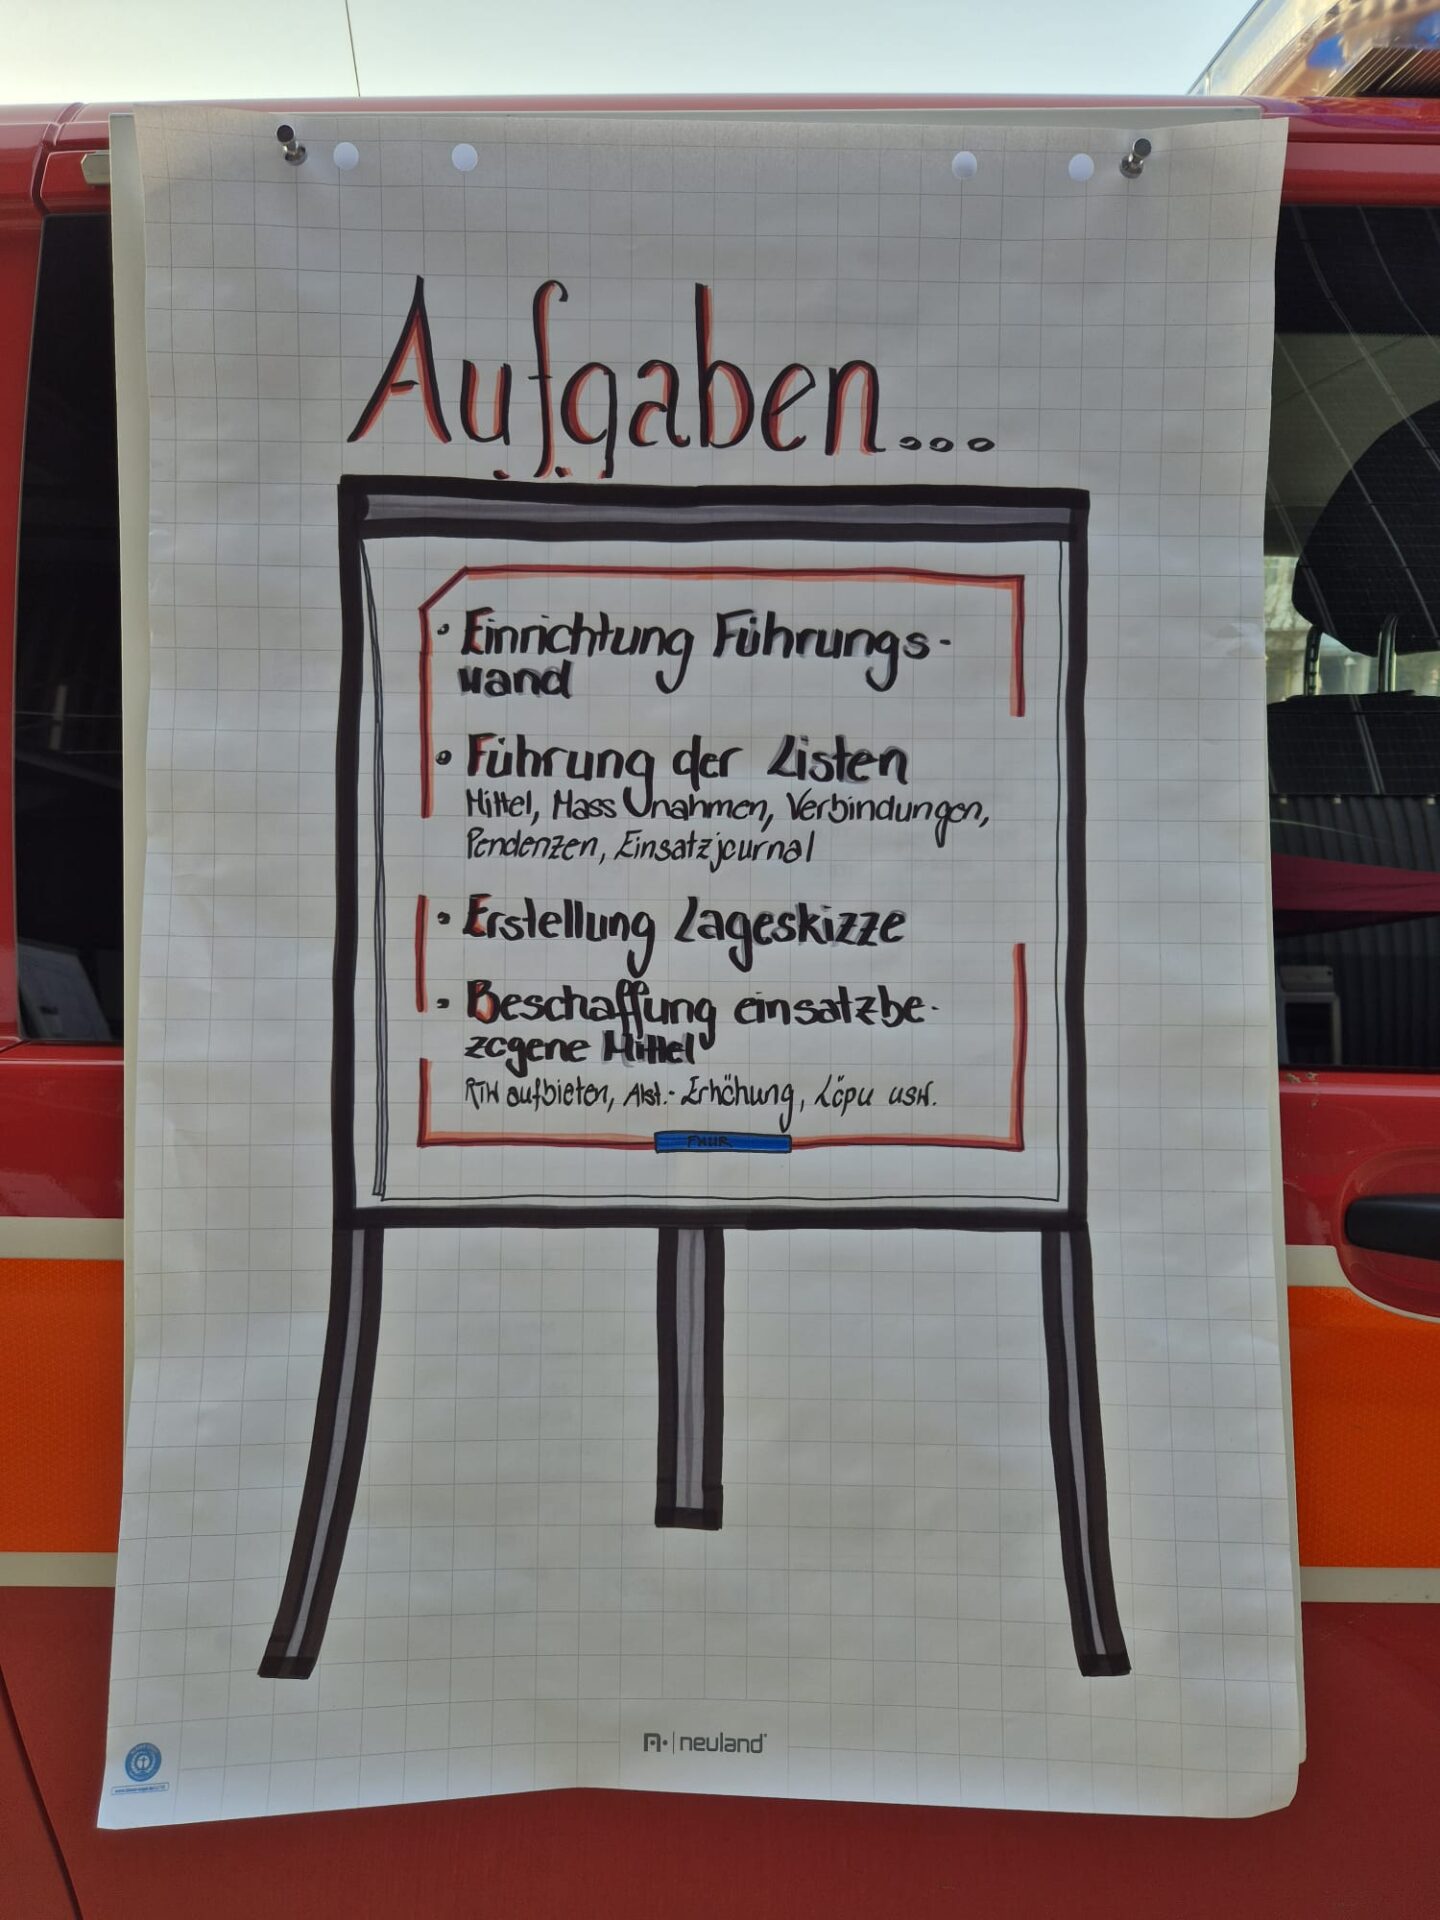 Aufgaben...
• Einrichtung Führungs-
wand
• Führung der Listen
Mittel, Massnahmen, Verbindungen,
Pendenzen, Einsatzjournal
• Erstellung Lageskizze
• Beschaffung einsatzbe-
zogene Mittel
RTW aufbieten, Alst.-Erhöhung, Löpu usw.
neuland